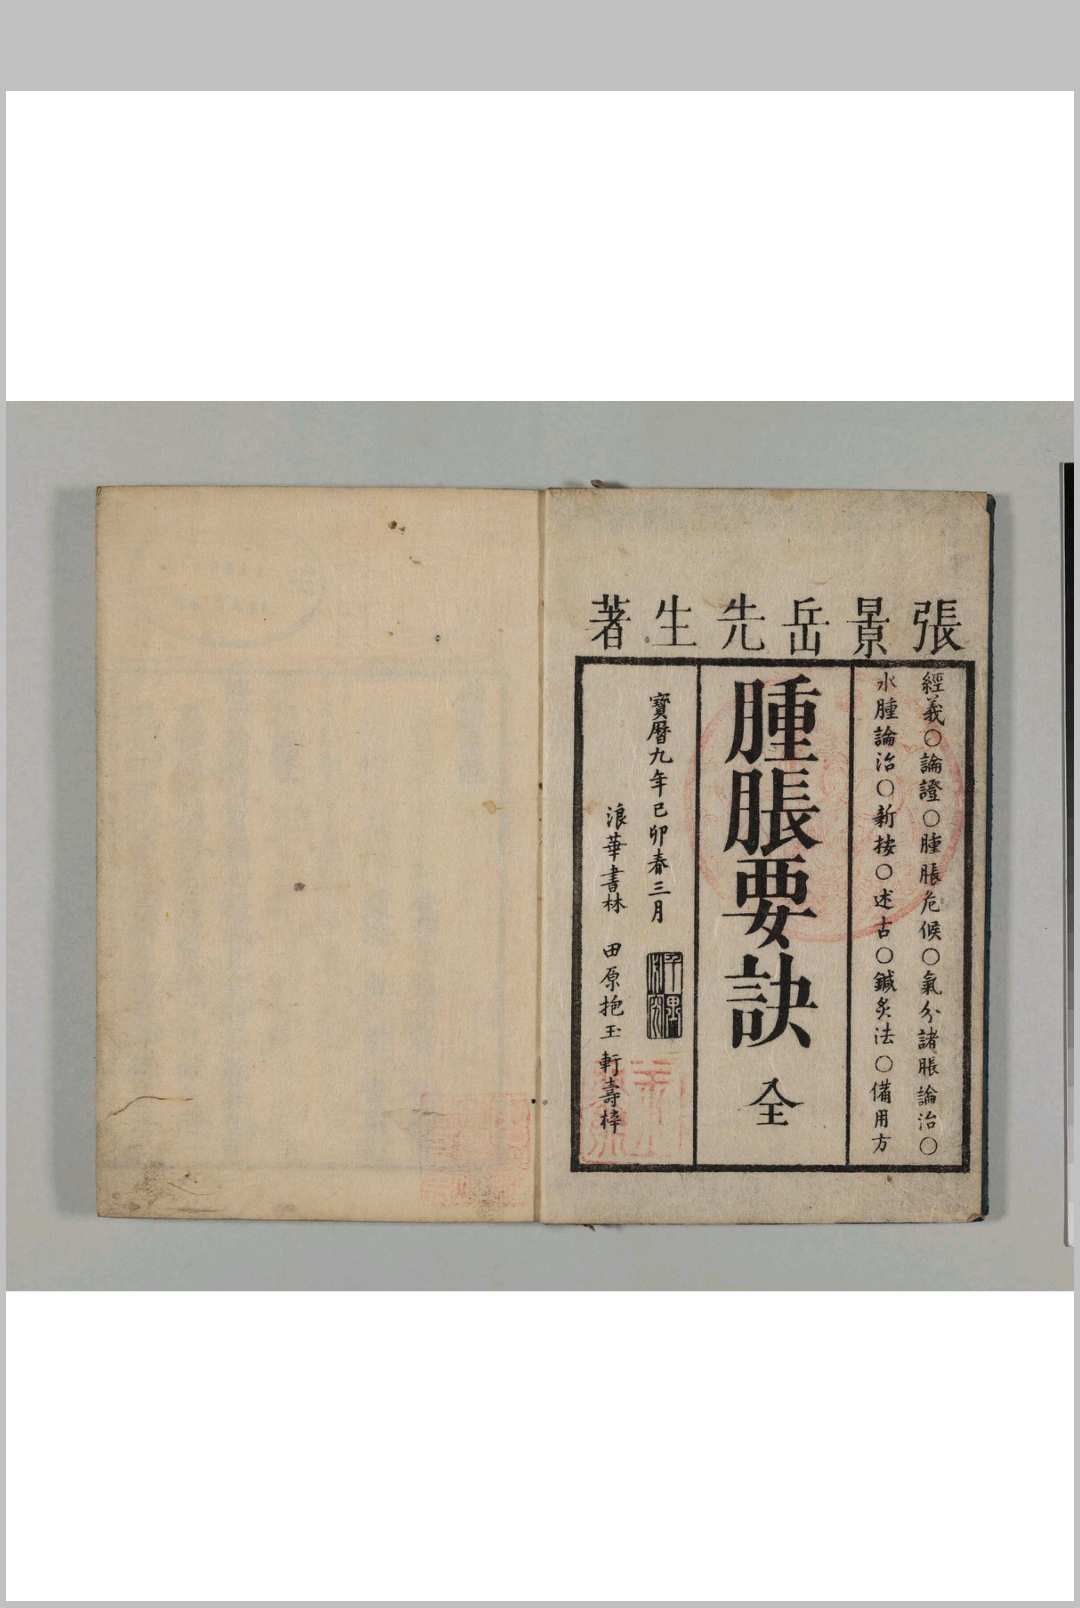 張景岳先生著
經義○論證○腫脹危候○氣分諸脹論治○
水腫論治○新按○述古○鍼灸法○備用方
腫脹要訣 全
寶曆九年己卯春三月
浪華書林 田原抱玉軒壽梓